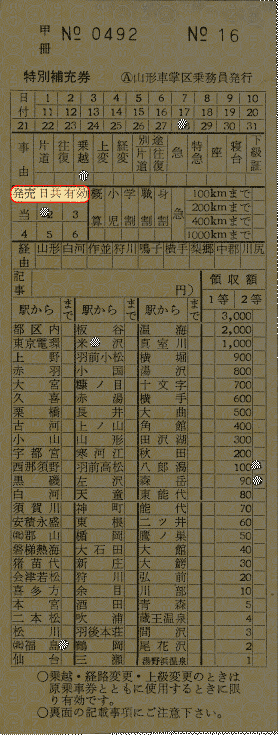 甲冊 № 0492 № 16
特別補充券 Ⓐ山形車掌区乗務員発行
日 1 2 3 4 5 6 7 8 9 10
付 11 12 13 14 15 16 17 18 19 20
21 22 23 24 25 26 27 28 29 30 31
事由 片道 往復 乗越 上変 経変 別片道 途往復 急 特急 座 寝台 下級証
発売日共有効 概算 小児 学割 職割 身割 急 100kmまで
当 2 3 200kmまで
400kmまで
4 5 6 1000kmまで
経由 山形 白河 作並 狩川 鳴子 横手 梨郷 中郡 川尻
記事 円) 領収額
駅から まで 駅から まで 1等 2等
3,000
都区内 板谷 温海 2,000
東京電環 米沢 真室川 1,000
上野 羽前小松 横堀 900
赤羽 小国 湯沢 800
大宮 糠ノ目 十文字 700
久喜 赤湯 横手 600
栗橋 長井 大曲 500
古河 上ノ山 角館 400
小山 山形 田沢湖 300
宇都宮 寒河江 秋田 200
西那須野 羽前高松 八郎潟 100
黒磯 左沢 森岳 90
白河 天童 東能代 80
須賀川 神町 能代 70
安積永盛 東根 二ツ井 60
㈹郡山 楯岡 鷹ノ巣 50
磐梯熱海 大石田 大館 40
猪苗代 新庄 大鰐 30
会津若松 狩川 弘前 20
喜多方 余目 川部 10
本宮 酒田 青森 5
二本松 吹浦 蔵王温泉 4
松川 羽後本荘 間沢 3
福島 鶴岡 尾花沢 2
仙台 三瀬 湯野浜温泉 1
○乗越・経路変更・上級変更のときは
原乗車券とともに使用するときに限
り有効です。
○裏面の記載事項にご注意下さい。